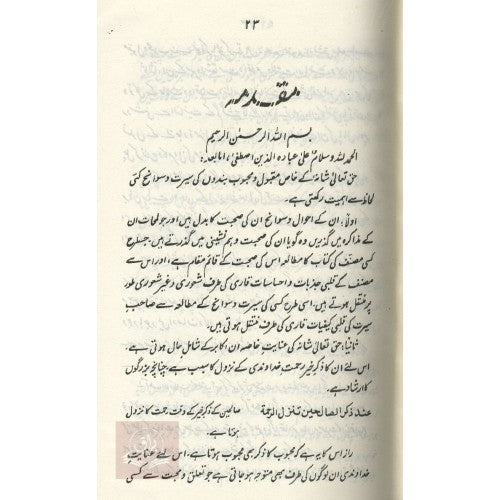 ۲۳
مقدمہ
بسم اللہ الرحمٰن الرحیم
الحمد للہ وسلام علیٰ عبادہ الذین اصطفیٰ، امابعد:
حق تعالیٰ شانہٗ کے خاص مقبول و محبوب بندوں کی سیرت و سوانح کئی
لحاظ سے اہمیت رکھتی ہے۔
اولاً: ان کے احوال و سوانح ان کی صحبت کا بدل ہیں اور جو لمحات ان
کے مذاکرہ میں گذریں وہ گویا ان کی صحبت و ہم نشینی میں گذرتے ہیں، جسطرح
کسی مصنف کی کتاب کا مطالعہ اس کی صحبت کے قائم مقام ہے، اور اس سے
مصنف کے قلبی جذبات و احساسات قاری کی طرف شعوری و غیر شعوری طور
پر منتقل ہوتے ہیں، اسی طرح کسی کی سیرت و سوانح کے مطالعہ سے صاحبِ
سیرت کی قلبی کیفیات قاری کی طرف منتقل ہوتی ہیں۔
ثانیاً: حق تعالیٰ شانہٗ کی عنایتِ خاصہ ان اکابر کے شاملِ حال ہوتی ہے،
اس لئے ان کا ذکرِ خیر رحمتِ خداوندی کے نزول کا سبب ہے، چنانچہ بزرگوں
کا ارشاد ہے۔
عند ذکر الصالحین تنزل الرحمة صالحین کے ذکرِ خیر کے وقت رحمت کا نزول
ہوتا ہے۔
راز اس کا یہ ہے کہ محبوب کا ذکر بھی محبوب ہوتا ہے، اس لئے عنایتِ
خداوندی ان لوگوں کی طرف بھی متوجہ ہو جاتی ہے جو تعلق و محبت سے کسی